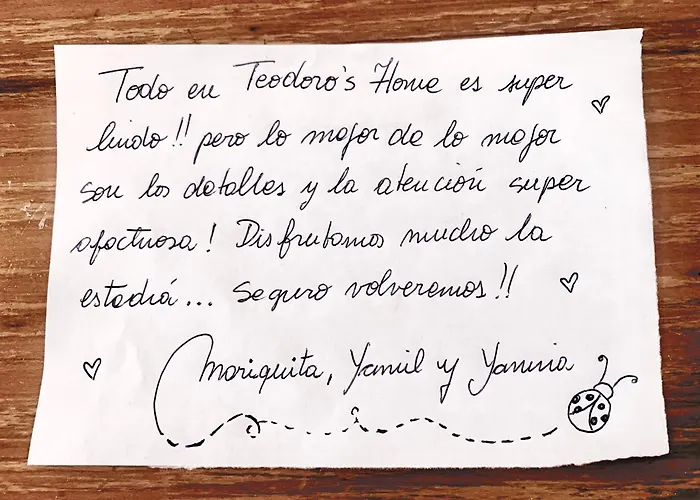 Todo en Teodoro's Home es super
lindo!! pero lo mejor de lo mejor
son los detalles y la atención super
afectuosa! Disfrutamos mucho la
estadiá... Seguro volveremos!!
Mariquita, Yamil y Yaminia